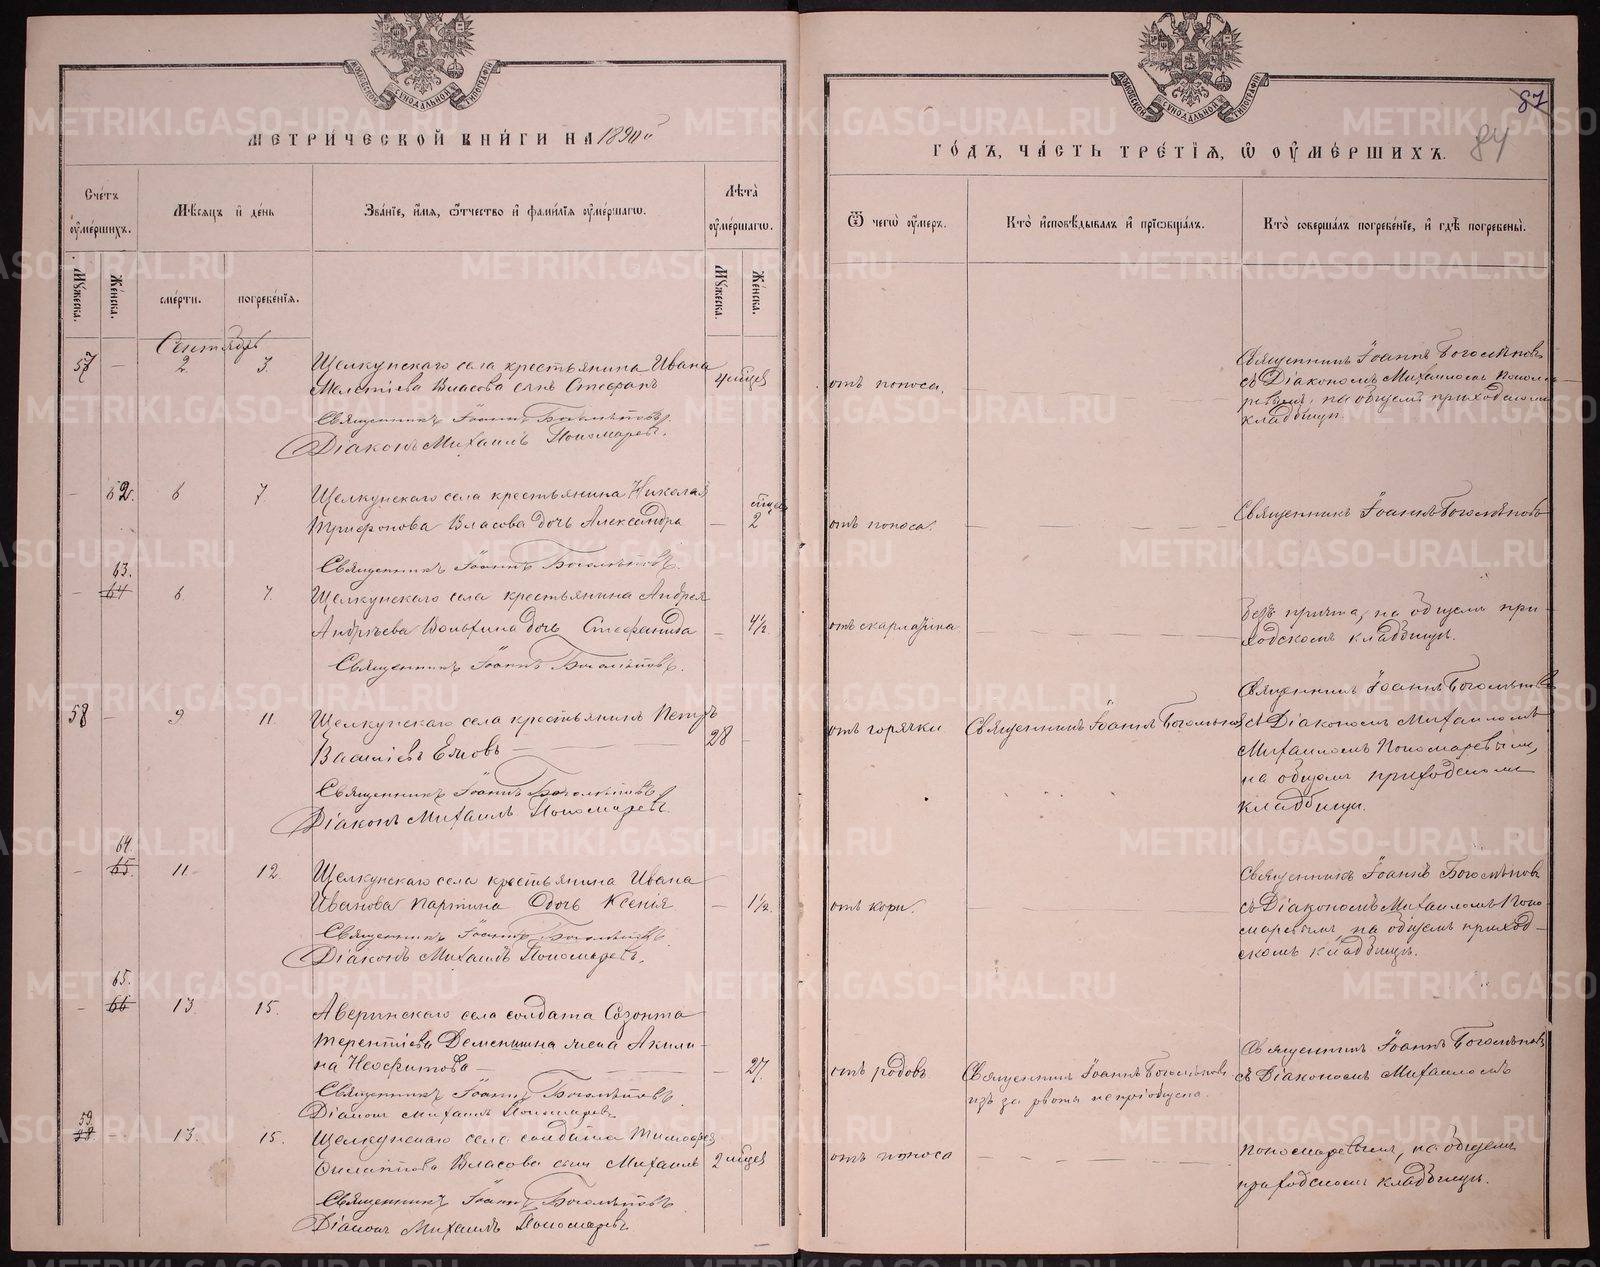 МЕТРИЧЕСКОЙ КНИГИ НА 1890й
Счетъ умершихъ.
Мѣсяцъ и день
Званіе, имя, отчество и фамилія умершаго.
Лѣта умершаго.
Мужеска.
Женска.
смерти.
погребенія.
Мужеска.
Женска.
Сентябрь
57 — 2. 3. Щелкунскаго села крестьянина Ивана
Мелетіева Власова сынъ Стефанъ 4 мѣсяц
Священникъ Іоаннъ Боголѣповъ.
Діаконъ Михаилъ Пономаревъ.
— 62. 6 7 Щелкунскаго села крестьянина Николая
Трифонова Власова дочь Александра — 2 мѣсяц
Священникъ Іоаннъ Боголѣповъ.
63.
— 64 6. 7. Щелкунскаго села крестьянина Андрея
Андреева дочь Стефанида — 4½
Священникъ Іоаннъ Боголѣповъ.
58 — 9 11. Щелкунскаго села крестьянинъ Петръ
Василіевъ — 28
Священникъ Іоаннъ Боголѣповъ
Діаконъ Михаилъ Пономаревъ.
64.
— 65. 11 12. Щелкунскаго села крестьянина Ивана
Иванова Партина дочь Ксенія — 1½
Священникъ Іоаннъ Боголѣповъ
Діаконъ Михаилъ Пономаревъ.
65.
— 66 13 15. Аверинскаго села солдата Созонта
Терентіева Деменшина жена Акили-
на Неофитова — 27.
Священникъ Іоаннъ Боголѣповъ
Діаконъ Михаилъ Пономаревъ
59
— 13. 15. Щелкунскаго села солдата Тимофея
Филатова Власова сынъ Михаилъ 2 мѣсяц
Священникъ Іоаннъ Боголѣповъ
Діаконъ Михаилъ Пономаревъ
87
84
ГОДЪ, ЧАСТЬ ТРЕТІЯ, Ѡ УМЕРШИХЪ.
Ѿ чегѡ умеръ.
Кто исповѣдывалъ и пріобщалъ.
Кто совершалъ погребеніе, и гдѣ погребены.
отъ поноса.
Священникъ Іоаннъ Боголѣповъ
съ Діакономъ Михаиломъ Понома-
ревымъ, на общемъ приходскомъ
кладбищѣ.
отъ поноса.
Священникъ Іоаннъ Боголѣповъ
отъ скарлатина.
безъ причта, на общемъ при-
ходскомъ кладбищѣ.
отъ горячки
Священникъ Іоаннъ Боголѣповъ
Священникъ Іоаннъ Боголѣповъ
съ Діакономъ Михаиломъ
Михаиломъ Пономаревымъ,
на общемъ приходскомъ
кладбищѣ.
отъ кори.
Священникъ Іоаннъ Боголѣповъ
съ Діакономъ Михаиломъ Поно-
маревымъ на общемъ приход-
скомъ кладбищѣ.
отъ родовъ
Священникъ Іоаннъ Боголѣповъ
изъ за рвоты непріобщена.
Священникъ Іоаннъ Боголѣповъ
съ Діакономъ Михаиломъ
отъ поноса
Пономаревымъ, на общемъ
приходскомъ кладбищѣ.